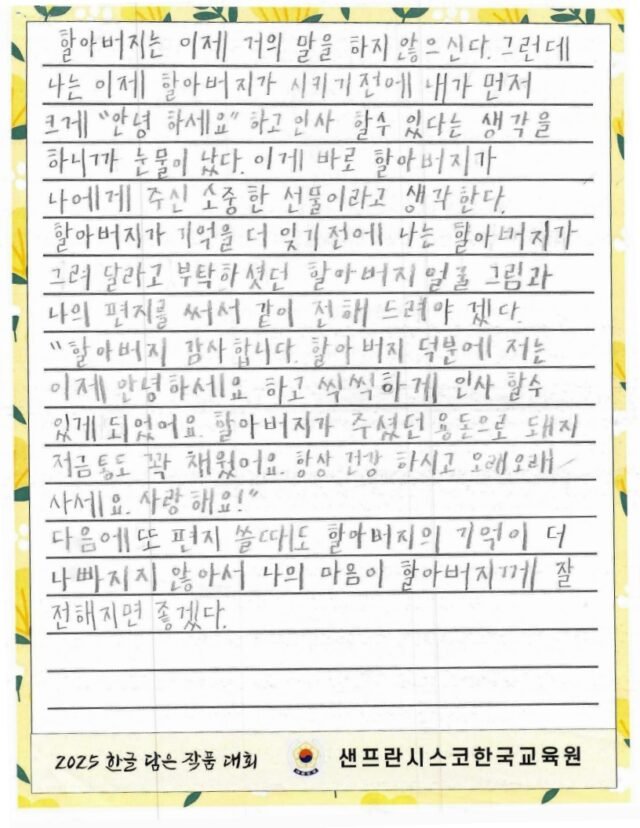 할아버지는 이제 거의 말을 하지 않으신다. 그런데
나는 이제 할아버지가 시키기전에 내가 먼저
크게 "안녕 하세요" 하고 인사 할수 있다는 생각을
하니까 눈물이 났다. 이게 바로 할아버지가
나에게 주신 소중한 선물이라고 생각한다.
할아버지가 기억을 더 잊기전에 나는 할아버지가
그려 달라고 부탁하셨던 할아버지 얼굴 그림과
나의 편지를 써서 같이 전해 드려야 겠다.
"할아버지 감사합니다. 할아버지 덕분에 저는
이제 안녕하세요 하고 씩씩하게 인사 할수
있게 되었어요. 할아버지가 주셨던 용돈으로 돼지
저금통도 꽉 채웠어요. 항상 건강 하시고 오래오래
사세요. 사랑해요!"
다음에 또 편지 쓸때도 할아버지의 기억이 더
나빠지지 않아서 나의 마음이 할아버지께 잘
전해지면 좋겠다.
2025 한글 담은 작품 대회
샌프란시스코한국교육원